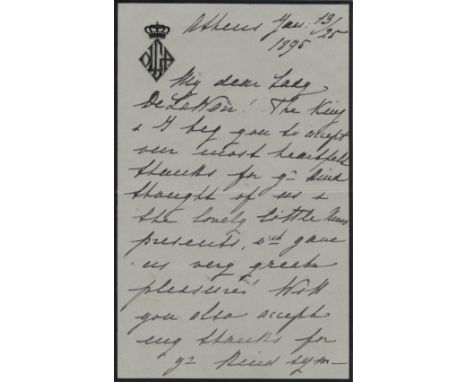 OLGA
Athens Jan: 13/25
1895
My dear Lady
De Lakon! The King
& I beg you to accept
our most heartfelt
thanks for yr kind
thought of us &
the lovely little Xmas
presents, wch gave
us very great
pleasure! Will
you also accept
my thanks for
yr kind sym-